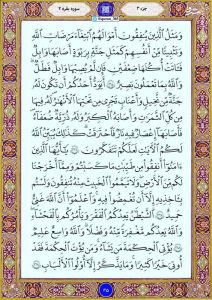 جزء ۳
سوره بقره ۲
وَمَثَلُ الَّذِينَ يُنفِقُونَ أَمْوَالَهُمُ ابْتِغَاءَ مَرْضَاتِ اللَّهِ
وَتَثْبِيتًا مِّنْ أَنفُسِهِمْ كَمَثَلِ جَنَّةٍ بِرَبْوَةٍ أَصَابَهَا وَابِلٌ
فَـَٔاتَتْ أُكُلَهَا ضِعْفَيْنِ فَإِن لَّمْ يُصِبْهَا وَابِلٌ فَطَلٌّ
وَاللَّهُ بِمَا تَعْمَلُونَ بَصِيرٌ ٢٦٥ أَيَوَدُّ أَحَدُكُمْ أَن تَكُونَ لَهُ
جَنَّةٌ مِّن نَّخِيلٍ وَأَعْنَابٍ تَجْرِي مِن تَحْتِهَا الْأَنْهَارُ لَهُ فِيهَا
مِن كُلِّ الثَّمَرَاتِ وَأَصَابَهُ الْكِبَرُ وَلَهُ ذُرِّيَّةٌ ضُعَفَاءُ
فَأَصَابَهَا إِعْصَارٌ فِيهِ نَارٌ فَاحْتَرَقَتْ كَذَٰلِكَ يُبَيِّنُ اللَّهُ
لَكُمُ الْآيَاتِ لَعَلَّكُمْ تَتَفَكَّرُونَ ٢٦٦ يَا أَيُّهَا الَّذِينَ
آمَنُوا أَنفِقُوا مِن طَيِّبَاتِ مَا كَسَبْتُمْ وَمِمَّا أَخْرَجْنَا
لَكُم مِّنَ الْأَرْضِ وَلَا تَيَمَّمُوا الْخَبِيثَ مِنْهُ تُنفِقُونَ وَلَسْتُم
بِآخِذِيهِ إِلَّا أَن تُغْمِضُوا فِيهِ وَاعْلَمُوا أَنَّ اللَّهَ غَنِيٌّ
حَمِيدٌ ٢٦٧ الشَّيْطَانُ يَعِدُكُمُ الْفَقْرَ وَيَأْمُرُكُم بِالْفَحْشَاءِ
وَاللَّهُ يَعِدُكُم مَّغْفِرَةً مِّنْهُ وَفَضْلًا وَاللَّهُ وَاسِعٌ عَلِيمٌ
٢٦٨ يُؤْتِي الْحِكْمَةَ مَن يَشَاءُ وَمَن يُؤْتَ الْحِكْمَةَ فَقَدْ
أُوتِيَ خَيْرًا كَثِيرًا وَمَا يَذَّكَّرُ إِلَّا أُولُو الْأَلْبَابِ ٢٦٩
۴۵